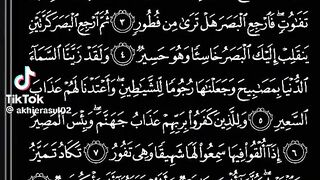 تَفَٰوُتٍ ۖ فَٱرْجِعِ ٱلْبَصَرَ هَلْ تَرَىٰ مِن فُطُورٍ ٣ ثُمَّ ٱرْجِعِ ٱلْبَصَرَ كَرَّتَيْنِ
يَنقَلِبْ إِلَيْكَ ٱلْبَصَرُ خَاسِئًا وَهُوَ حَسِيرٌ ٤ وَلَقَدْ زَيَّنَّا ٱلسَّمَآءَ
ٱلدُّنْيَا بِمَصَٰبِيحَ وَجَعَلْنَٰهَا رُجُومًا لِّلشَّيَٰطِينِ ۖ وَأَعْتَدْنَا لَهُمْ عَذَابَ
ٱلسَّعِيرِ ٥ وَلِلَّذِينَ كَفَرُوا۟ بِرَبِّهِمْ عَذَابُ جَهَنَّمَ ۖ وَبِئْسَ ٱلْمَصِيرُ
٦ إِذَآ أُلْقُوا۟ فِيهَا سَمِعُوا۟ لَهَا شَهِيقًا وَهِىَ تَفُورُ ٧ تَكَادُ تَمَيَّزُ
TikTok
@akhierasul02